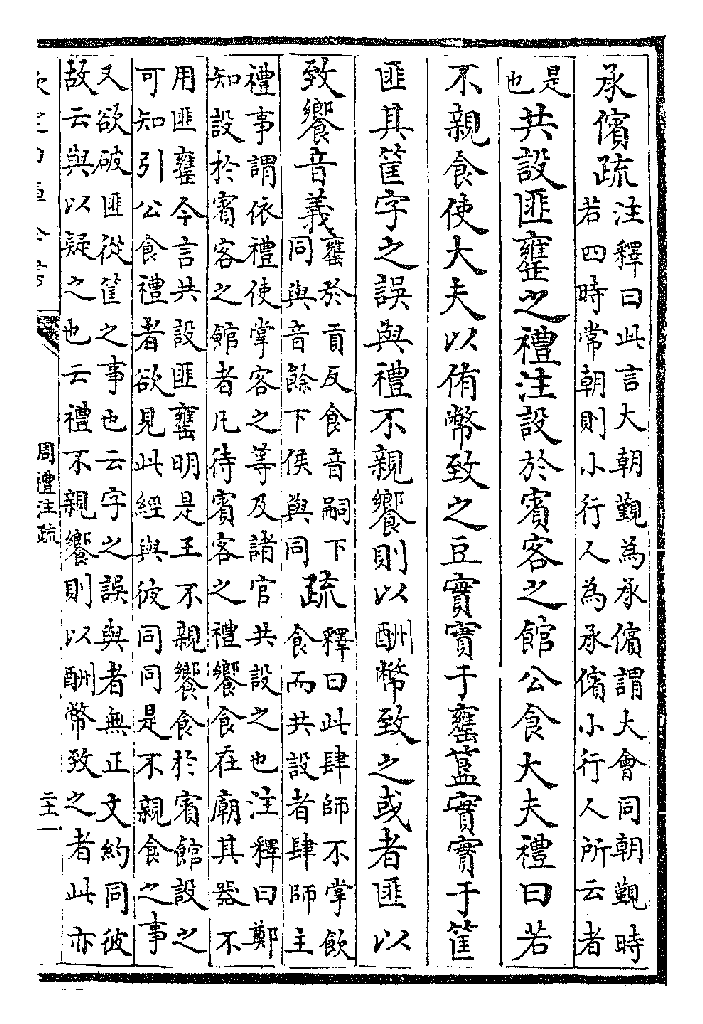 承儐疏
注釋曰此言大朝覲為承儐謂大會同朝覲時
若四時常朝則小行人為承儐小行人所云者
是
也
共設匪罋之禮注設於賓客之館公食大夫禮曰若
不親食使大夫以侑幣致之豆實實于罋簋實實于筐
匪其筐字之誤與禮不親饗則以酬幣致之或者匪以
致饗音義
罋於貢反食音嗣下
同與音餘下侯與同
疏
釋曰此肆師不掌飲
食而共設者肆師主
禮事謂依禮使掌客之等及諸官共設之也注釋曰鄭
知設於賓客之館者凡待賓客之禮饗食在廟其器不
用匪罋今言共設匪罋明是王不親饗食於賓館設之
可知引公食禮者欲見此經與彼同同是不親食之事
又欲破匪從筐之事也云字之誤與者無正文約同彼
故云與以疑之也云禮不親饗則以酬幣致之者此亦
周禮注疏